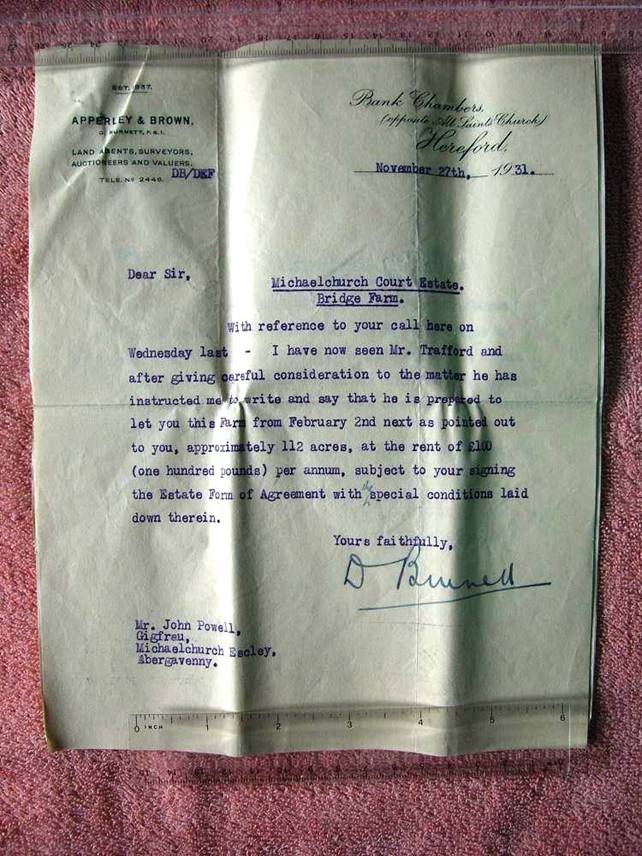 EST. 1837.
APPERLEY & BROWN,
D. BURNETT, F.S.I.
LAND AGENTS, SURVEYORS,
AUCTIONEERS AND VALUERS.
TELE. Nº 2446.
DB/DEF
Bank Chambers,
(opposite All Saints Church)
Hereford,
November 27th, 1931.
Dear Sir,
Michaelchurch Court Estate.
Bridge Farm.
With reference to your call here on
Wednesday last - I have now seen Mr. Trafford and
after giving careful consideration to the matter he has
instructed me to write and say that he is prepared to
let you this Farm from February 2nd next as pointed out
to you, approximately 112 acres, at the rent of £100
(one hundred pounds) per annum, subject to your signing
the Estate Form of Agreement with special conditions laid
down therein.
Yours faithfully,
D Burnett
Mr. John Powell,
Gigfrau,
Michaelchurch Escley,
Abergavenny.
0 INCH 1 2 3 4 5 6